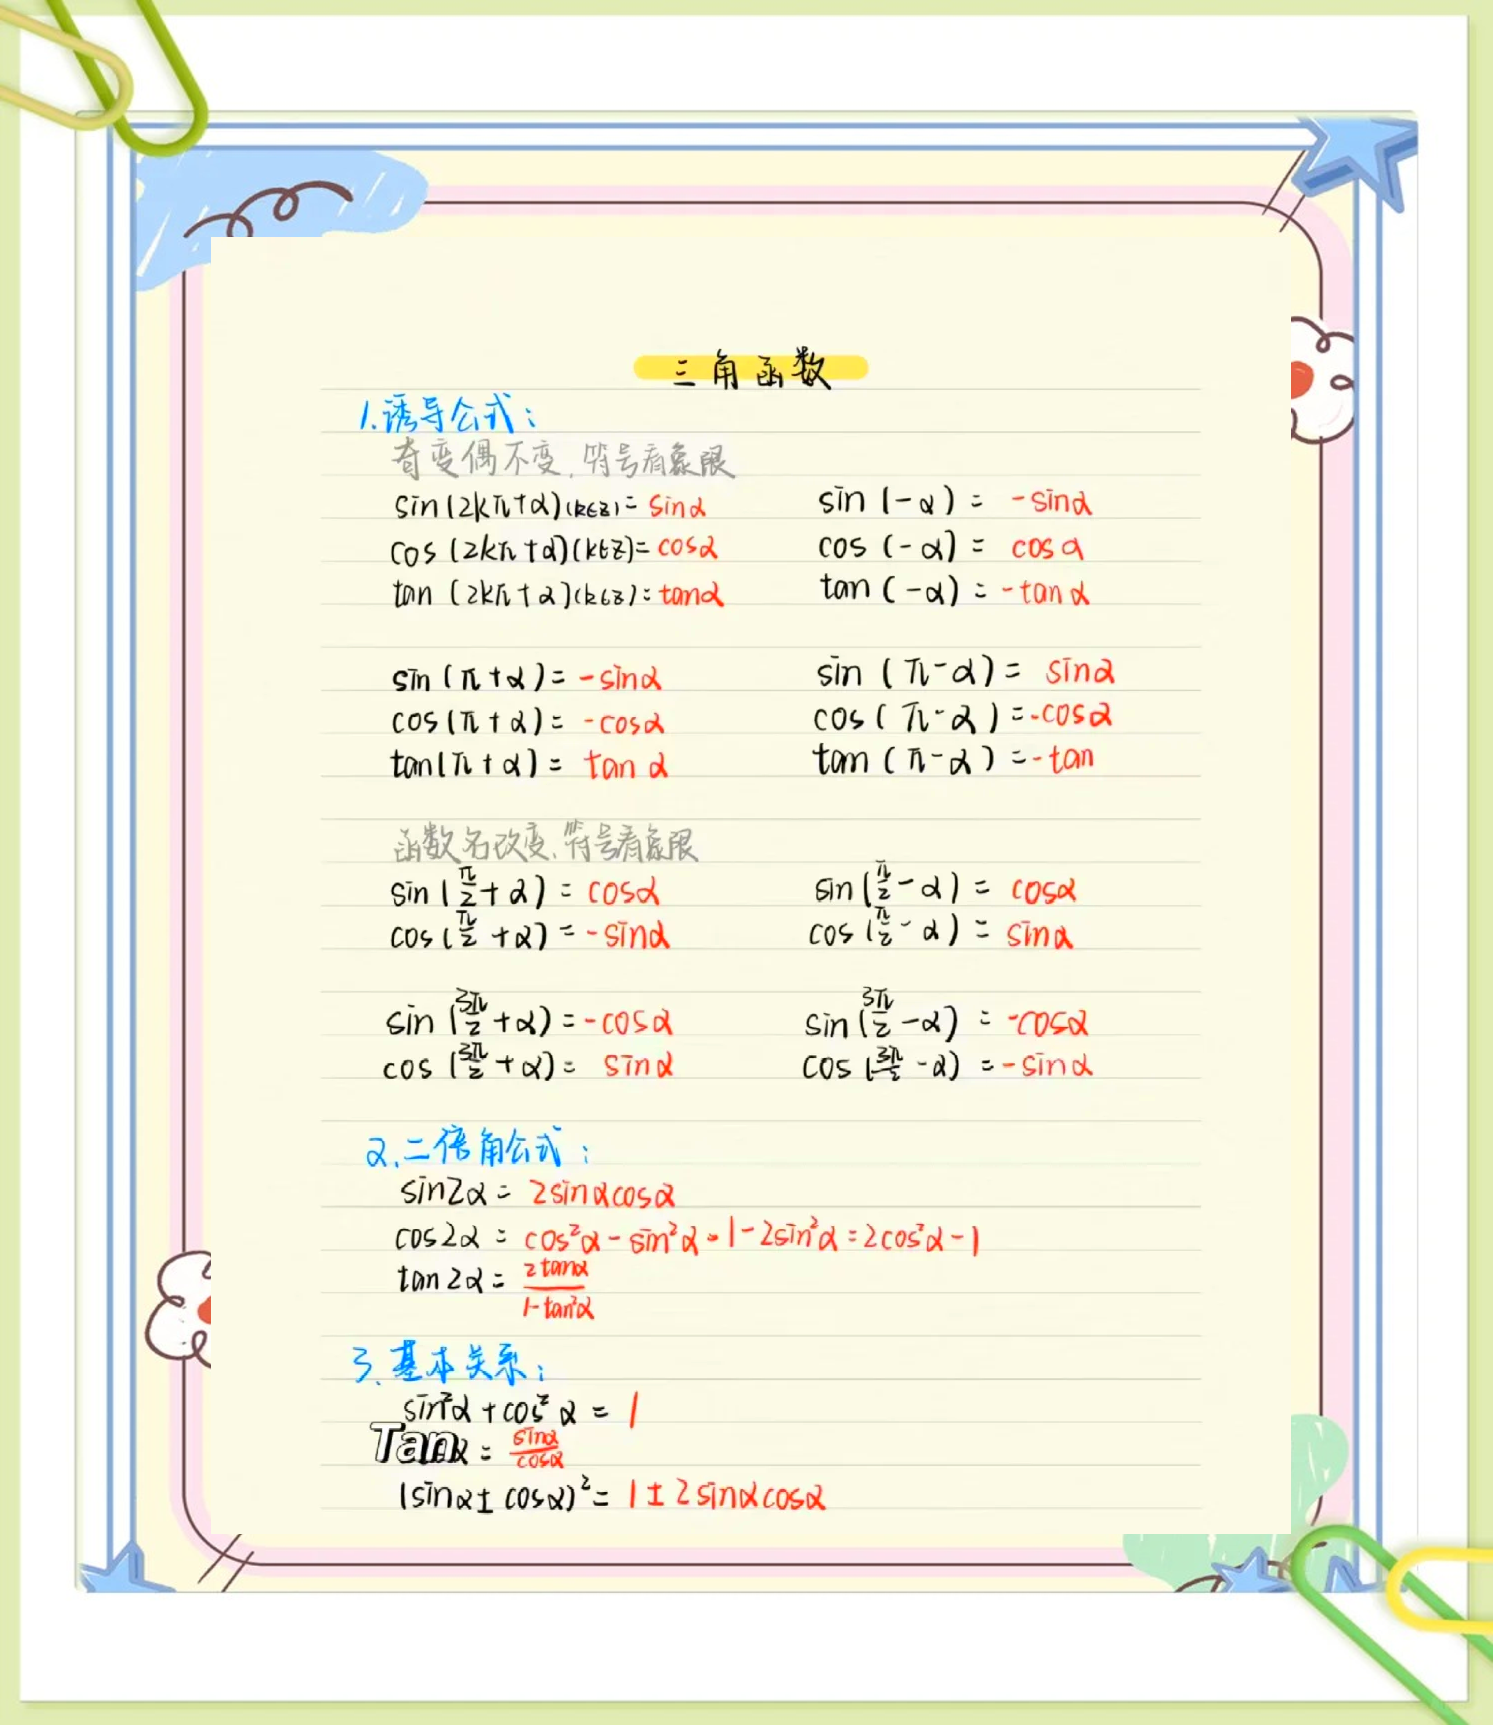 三角函数
1.诱导公式:
奇变偶不变,符号看象限
sin(2kπ+α)(k∈Z)=sinα sin(-α)= -sinα
cos(2kπ+α)(k∈Z)=cosα cos(-α)= cosα
tan(2kπ+α)(k∈Z)=tanα tan(-α)=-tanα
sin(π+α)=-sinα sin(π-α)= sinα
cos(π+α)= -cosα cos(π-α)=-cosα
tan(π+α)= tanα tan(π-α)=-tan
函数名改变,符号看象限
sin(π/2+α)= cosα sin(π/2-α)= cosα
cos(π/2+α)=-sinα cos(π/2-α)= sinα
sin(3π/2+α)=-cosα sin(3π/2-α)= -cosα
cos(3π/2+α)= sinα cos(3π/2-α)=-sinα
2.二倍角公式:
sin2α= 2sinαcosα
cos2α= cos²α-sin²α=1-2sin²α=2cos²α-1
tan2α= 2tanα/1-tan²α
3.基本关系:
sin²α+cos²α=1
Tanα= sinα/cosα
(sinα±cosα)²=1±2sinαcosα